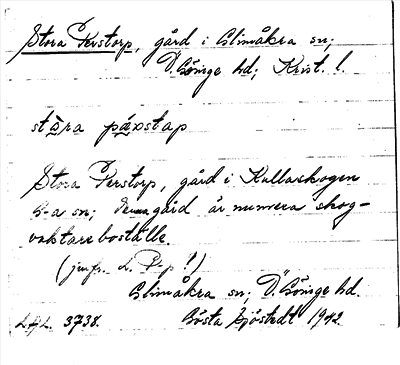 Stora Perstorp, gård i Glimåkra sn;
Ö. Göinge hd; Krist. l.
stǫra pæxstap
Stora Perstorp, gård i Kullaskogen
G-a sn; denna gård är numera skog-
vaktareboställe.
(jmfr. L. P-p!)
Glimåkra sn; Ö. Göinge hd.
LAL. 3738. Gösta Sjöstedt 1942.